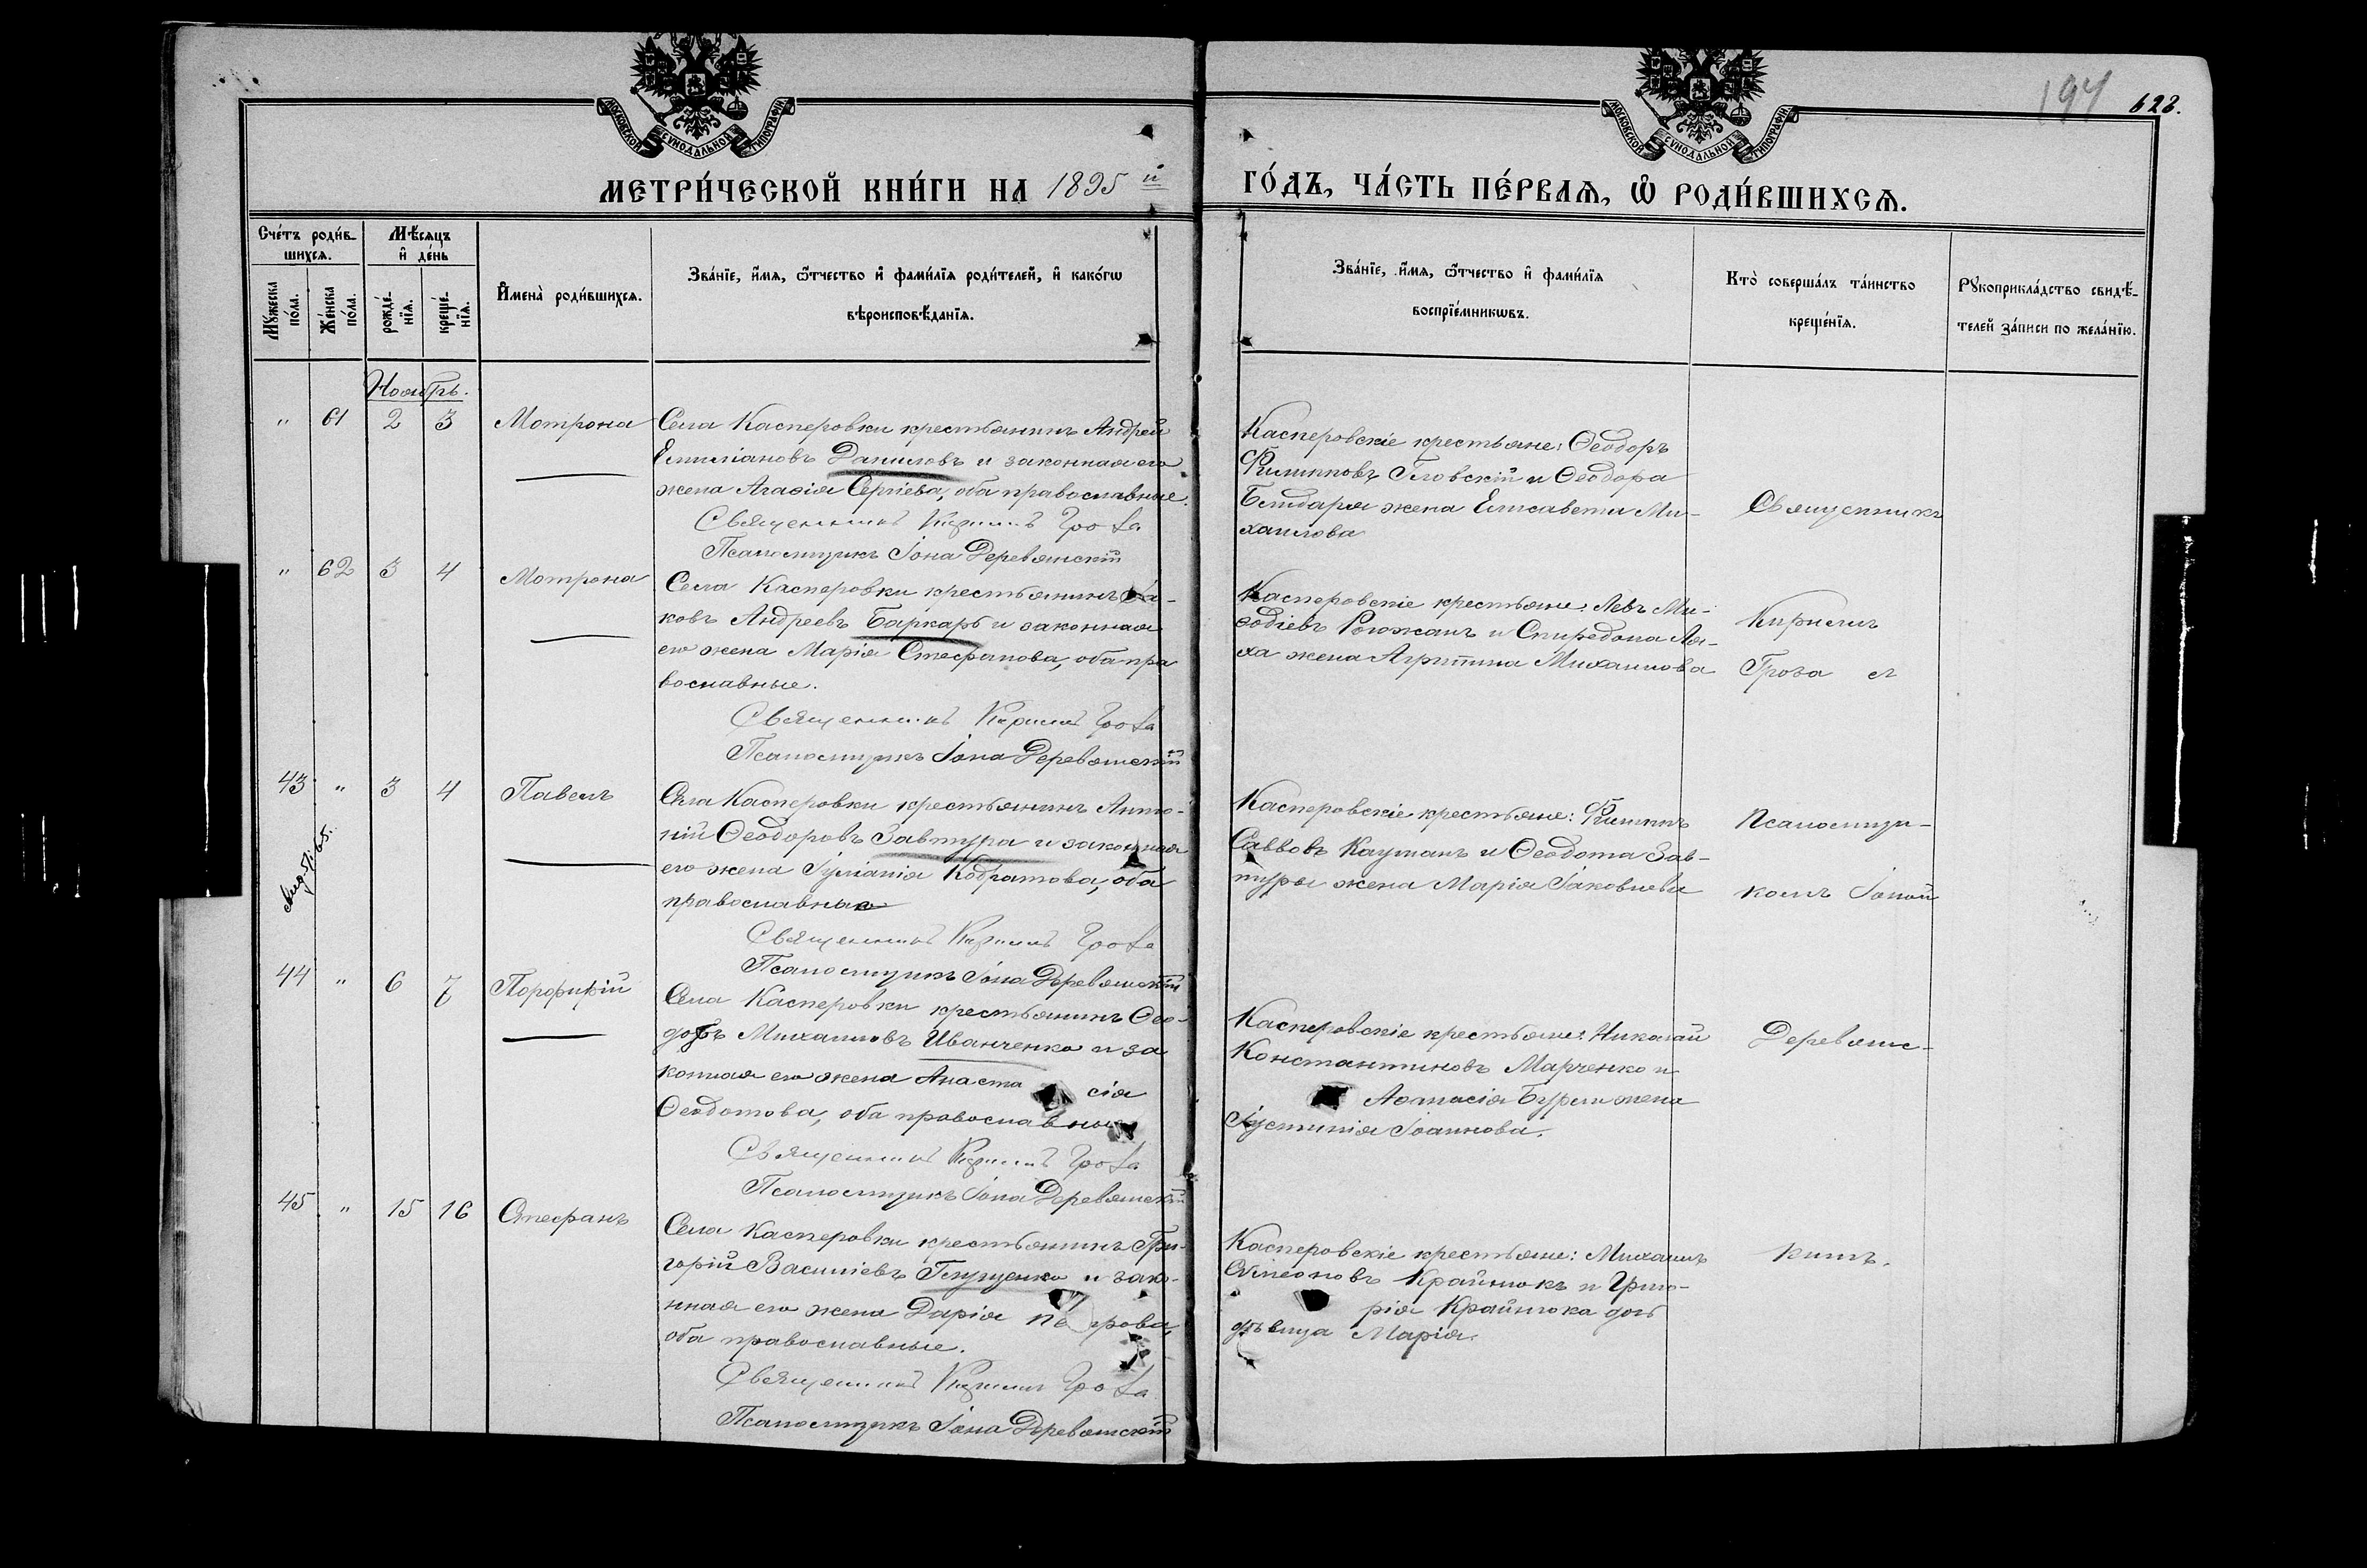 194 628.
МОСКОВСКОЙ СѴНОДАЛЬНОЙ ТИПОГРАФІИ
МОСКОВСКОЙ СѴНОДАЛЬНОЙ ТИПОГРАФІИ
МЕТРИ́ЧЕСКОЙ КНИ́ГИ НА 1895 й
ГО́ДЪ, ЧА́СТЬ ПЕ́РВАѦ, Ѡ҆ РОДИ́ВШИХСѦ.
Сче́тъ роди́в-
шихсѧ.
Мꙋ́жеска по́ла.
Же́нска по́ла.
Мѣ́сѧцъ
и҆ де́нь
рожде́-
нїѧ.
креще́-
нїѧ.
И҆мена̀ роди́вшихсѧ.
Зва́нїе, и҆́мѧ, ѻ҆́тчество и҆ фами́лїѧ роди́телей, и҆ како́гѡ
вѣроисповѣ́данїѧ.
Зва́нїе, и҆́мѧ, ѻ҆́тчество и҆ фами́лїѧ
воспрїе́мникѡвъ.
Кто̀ соверша́лъ та́инство
креще́нїѧ.
Рꙋкоприкла́дство свидѣ́-
телей за́писи по жела́нїю.
Ноябрь.
" 61 2 3 Мотрона
Села Касперовки крестьянинъ Андрей
Емиліановъ Даниловъ и законная его
жена Агафія Сергіева, оба православные.
Священникъ Кирилъ Гроза
Псаломщикъ Іона Деревянскій
Касперовскіе крестьяне: Ѳеодоръ
Филипповъ и Ѳеодора
Бендаря жена Елисавета Ми-
хаилова
Священникъ
" 62 3 4 Мотрона
Села Касперовки крестьянинъ Іа-
ковъ Андреевъ Баркарь и законная
его жена Марія Стефанова, оба пра
вославные.
Священникъ Кирилъ Гроза
Псаломщикъ Іона Деревянскій
Касперовскіе крестьяне: Левъ Ме-
ѳодіевъ и Спиридона Ля-
ха жена Агриппина Михаилова
Кирилъ
Гроза съ
43 " 3 4 Павелъ
Села Касперовки крестьянинъ Анто-
ній Ѳеодоровъ Завтура и законная
его жена Іуліанія Кодратова, оба
православные
Священникъ Кирилъ Гроза
Псаломщикъ Іона Деревянскій
Касперовскіе крестьяне: Филиппъ
Саввовъ Кауманъ и Ѳеодота Зав-
туры жена Марія Іаковлева
Псаломщи-
комъ Іоной
44 " 6 7 Порфирій
Села Касперовки крестьянинъ Ѳео-
доръ Михаиловъ Иванченко и за
конная его жена Анаста сія
Ѳеодотова, оба православные
Священникъ Кирилъ Гроза
Псаломщикъ Іона Деревянскій
Касперовскіе крестьяне: Николай
Константиновъ Марченко и
Аѳанасія жена
Іустинія Іоаннова.
Деревянс-
45 " 15 16 Стефанъ
Села Касперовки крестьянинъ Гри-
горій Василіевъ Глущенко и зако-
нная его жена Дарія Петрова,
оба православные.
Священникъ Кирилъ Гроза
Псаломщикъ Іона Деревянскій
Касперовскіе крестьяне: Михаилъ
Симеоновъ Крайнюкъ и Григо-
рія Крайнюка дочь
дѣвица Марія.
кимъ.